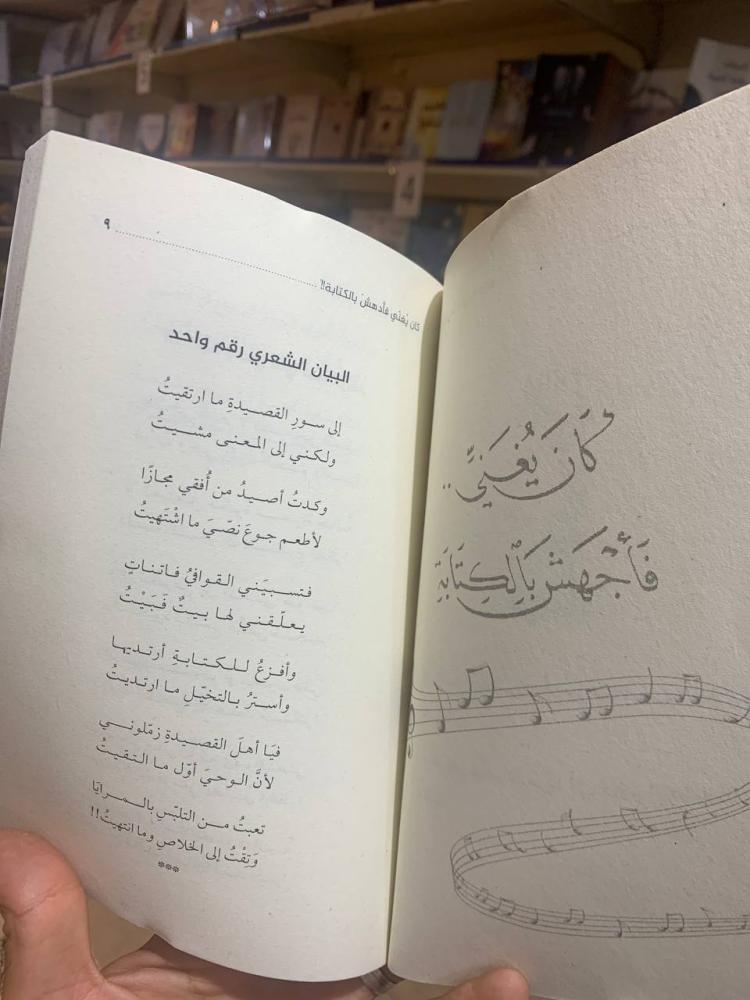 كَانَ يُغَنِّي..
فَأَجْهَشَ بِالْكِتَابَةِ
كان يُغنّي فأجهشَ بالكتابة!! ........ ٩
البيان الشعري رقم واحد
إلى سورِ القصيدةِ ما ارتقيتُ
ولكني إلى المعنى مشيتُ
وكدتُ أصيدُ من أُفقي مجازًا
لأطعم جوعَ نصّيَ ما اشْتَهيتُ
فتسبيَني القوافيُ فاتناتٍ
يعلّقني لها بيتٌ فَبَيْتُ
وأفزعُ للكتابةِ أرتديها
وأسترُ بالتخيّلِ ما ارتديتُ
فيَا أهلَ القصيدةِ زمّلوني
لأنَّ الوحيَ أوّل ما التقيتُ
تعبتُ من التلبّسِ بالمرايَا
وَتِقْتُ إلى الخلاصِ وما انتهيتُ!!
***